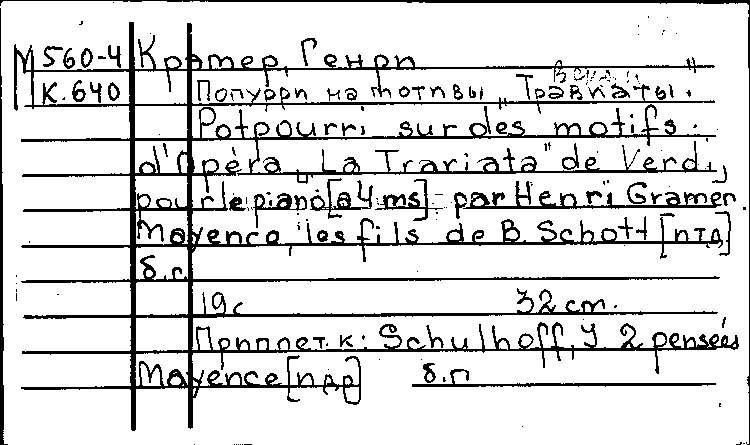 М 560-4 Крамер, Генри
К.640 Попурри на мотивы „Травиаты".
Potpourri sur des motifs
d'Opéra „La Traviata" de Verdi,
pour le piano [a 4 ms] par Henri Cramer.
Mayence, les fils de B. Schott [п.т.д]
б.г.
19 с 32 cm.
Приплет. к: Schulhoff, J 2 pensées
Mayence [пдр] б.п